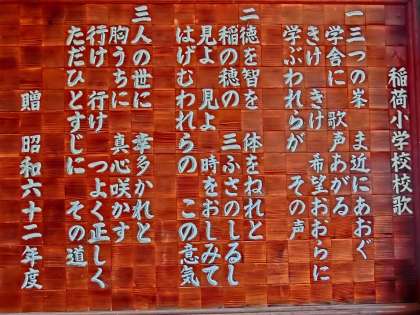 稲荷小学校校歌
一 三つの峯 ま近にあおぐ
学舎に 歌声あがる
きけ きけ 希望おおらに
学ぶわれらが その声
二 徳を智を 体をねれと
稲の穂の 三ふさのしるし
見よ 見よ 時をおしみて
はげむわれらの この意気
三 人の世に 幸多かれと
胸うちに 真心咲かす
行け 行け つよく正しく
ただひとすじに その道
贈 昭和六十二年度